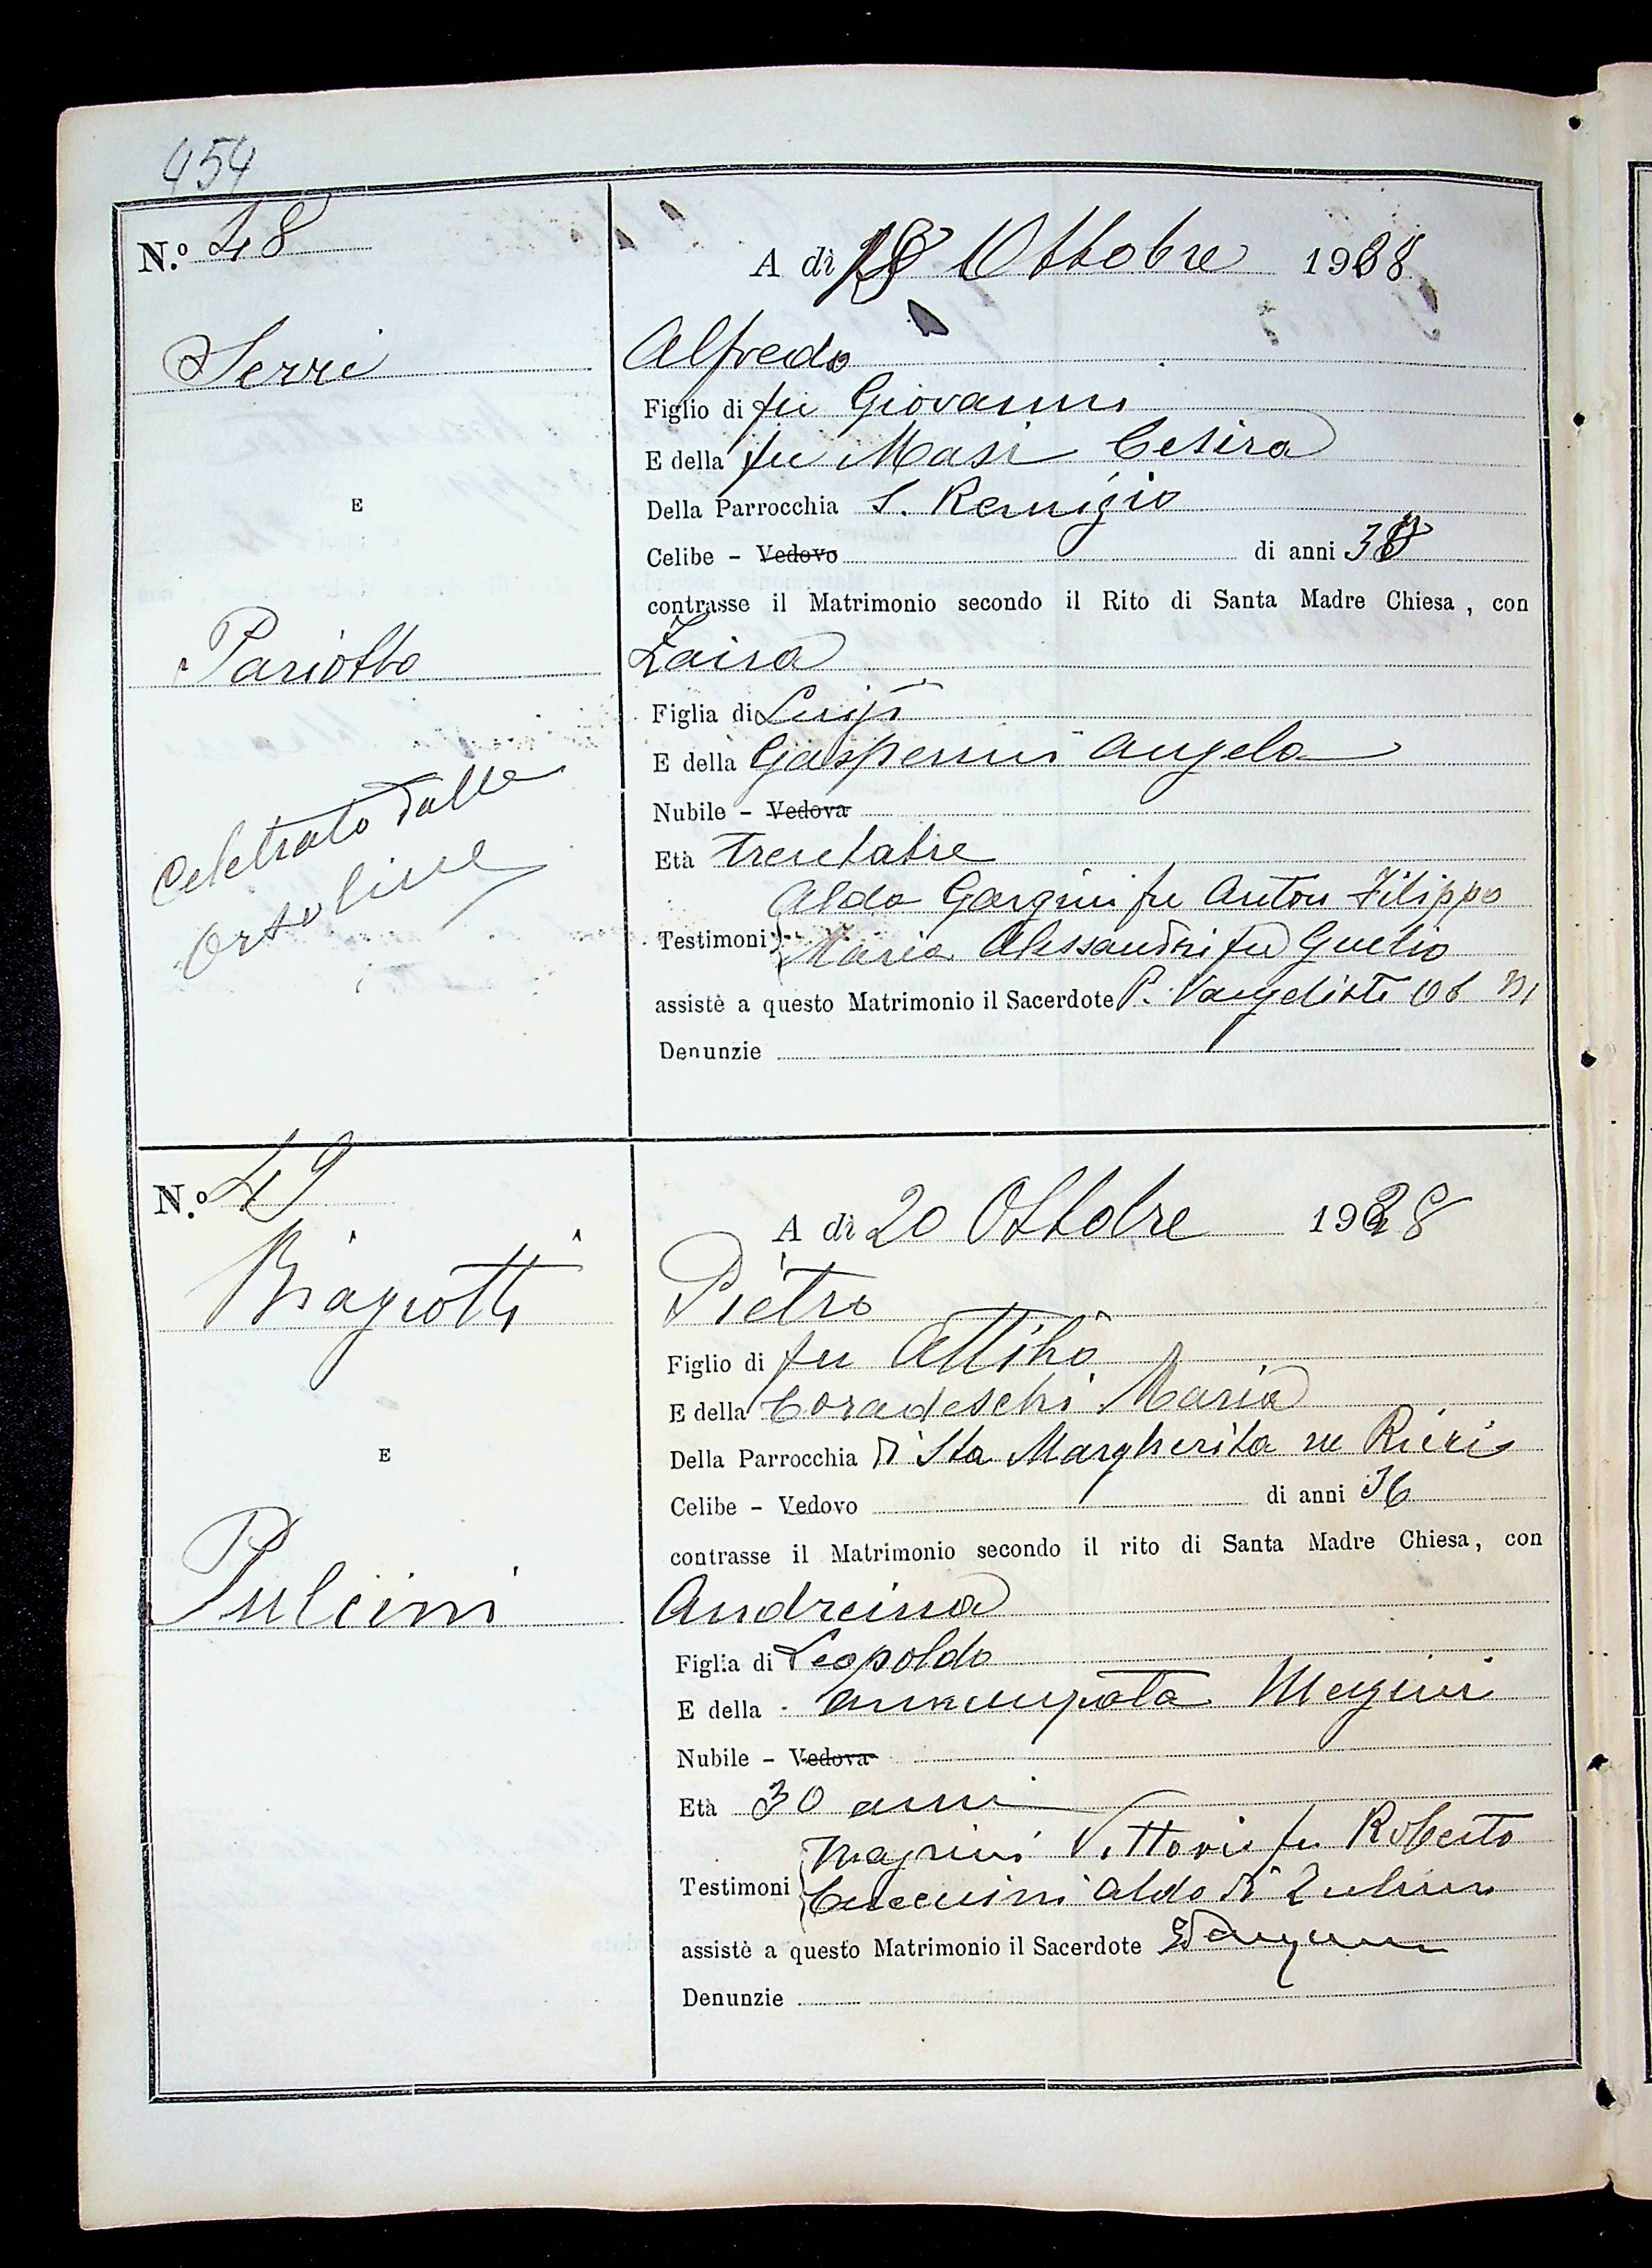 454
N.º 48
A dì 18 Ottobre 1938
Serri
Alfredo
Figlio di fu Giovanni
E della fu Masi Cesira
Della Parrocchia S. Remigio
E
Celibe - Vedovo di anni 38
contrasse il Matrimonio secondo il Rito di Santa Madre Chiesa, con
Pariotto
Laisa
Figlia di Luigi
E della Gasperini Angela
Nubile - Vedova
Età trentatre
Celebrato dalle
Orsoline
Testimoni Aldo Gargini fu Anton Filippo
Maria Alessandri fu Guelio
assistè a questo Matrimonio il Sacerdote P. Vangelisti
Denunzie
N.º 49
A dì 20 Ottobre 1938
Biagiotti
Pietro
Figlio di fu Attilio
E della Coradeschi Maria
Della Parrocchia di Sta Margherita ne Ricci
E
Celibe - Vedovo di anni 36
contrasse il Matrimonio secondo il rito di Santa Madre Chiesa, con
Pulcini
Andreina
Figlia di Leopoldo
E della Annunziata
Nubile - Vedova
Età 30 anni
Testimoni Magrini Vittorio fu Roberto
Aldo di
assistè a questo Matrimonio il Sacerdote
Denunzie